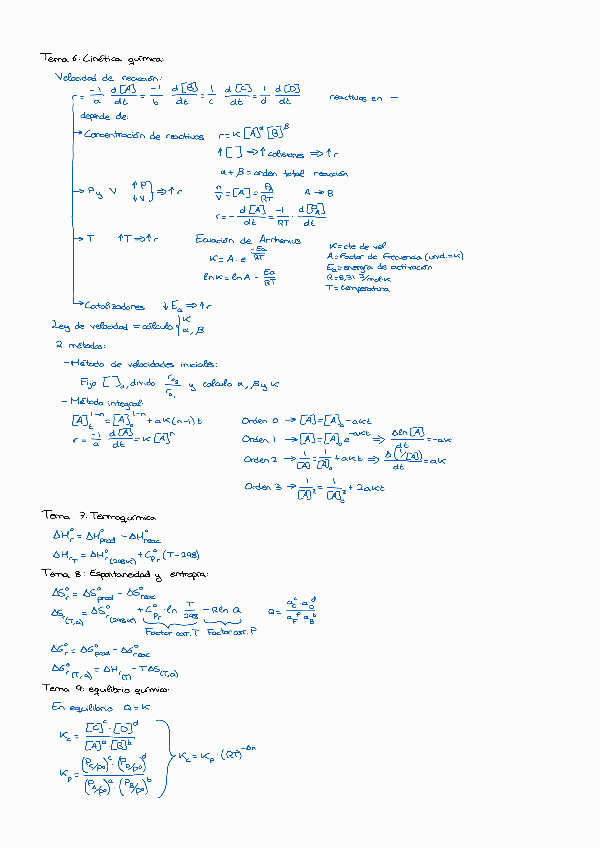 Tema 6: Cinética química:
Velocidad de reacción:
r = -1/a d[A]/dt = -1/b d[B]/dt = 1/c d[C]/dt = 1/d d[D]/dt reactivos en —
depende de:
→ Concentración de reactivos r = K[A]^α[B]^β
↑[ ] ⇒ ↑ colisiones ⇒ ↑ r
α + β = orden total reacción
→ P y V ↑P ↓V } ⇒ ↑ r n/V = [A] = P_A/RT A → B
r = - d[A]/dt = -1/RT · d[P_A]/dt
→ T ↑T ⇒ ↑r Ecuación de Arrhenius K = cte de vel
K = A · e^(-Ea/RT) A = Factor de Frecuencia (unid. = K)
Ea = energía de activación
ln K = ln A - Ea/RT R = 8,31 J/mol·K
T = temperatura
→ Catalizadores ↓ Ea ⇒ ↑ r
Ley de velocidad = cálculo { K α, β
2 métodos:
- Método de velocidades iniciales:
Fijo [ ]₀, divido r₀₂/r₀₁ y calculo α, β y K
- Método integral:
[A]_t^(1-n) = [A]_0^(1-n) + aK(n-1)t Orden 0 → [A] = [A]₀ - aKt
r = -1/a d[A]/dt = K[A]^n Orden 1 → [A] = [A]₀ e^(-aKt) ⇒ Δln[A]/dt = -aK
Orden 2 → 1/[A] = 1/[A]₀ + aKt ⇒ Δ(1/[A])/dt = aK
Orden 3 → 1/[A]² = 1/[A]₀² + 2aKt
Tema 7: Termoquímica
ΔH°r = ΔH°prod - ΔH°reac
ΔH°r_T = ΔH°r(298K) + C°p_r (T-298)
Tema 8: Espontaneidad y entropía:
ΔS°r = ΔS°prod - ΔS°reac
ΔS r(T,Q) = ΔS°r(298K) + C°p_r · ln T/298 - R ln Q Q = a_C^c · a_D^d / a_A^a a_B^b
Factor corr. T Factor corr. P
ΔG°r = ΔG°prod - ΔG°reac
ΔG°r(T,Q) = ΔH r(T) - TΔS(T,Q)
Tema 9: equilibrio químico:
En equilibrio Q = K
Kc = [C]^c · [D]^d / [A]^a · [B]^b
Kc = Kp · (RT)^(-Δn)
Kp = (P_C/p°)^c · (P_D/p°)^d / (P_A/p°)^a · (P_B/p°)^b